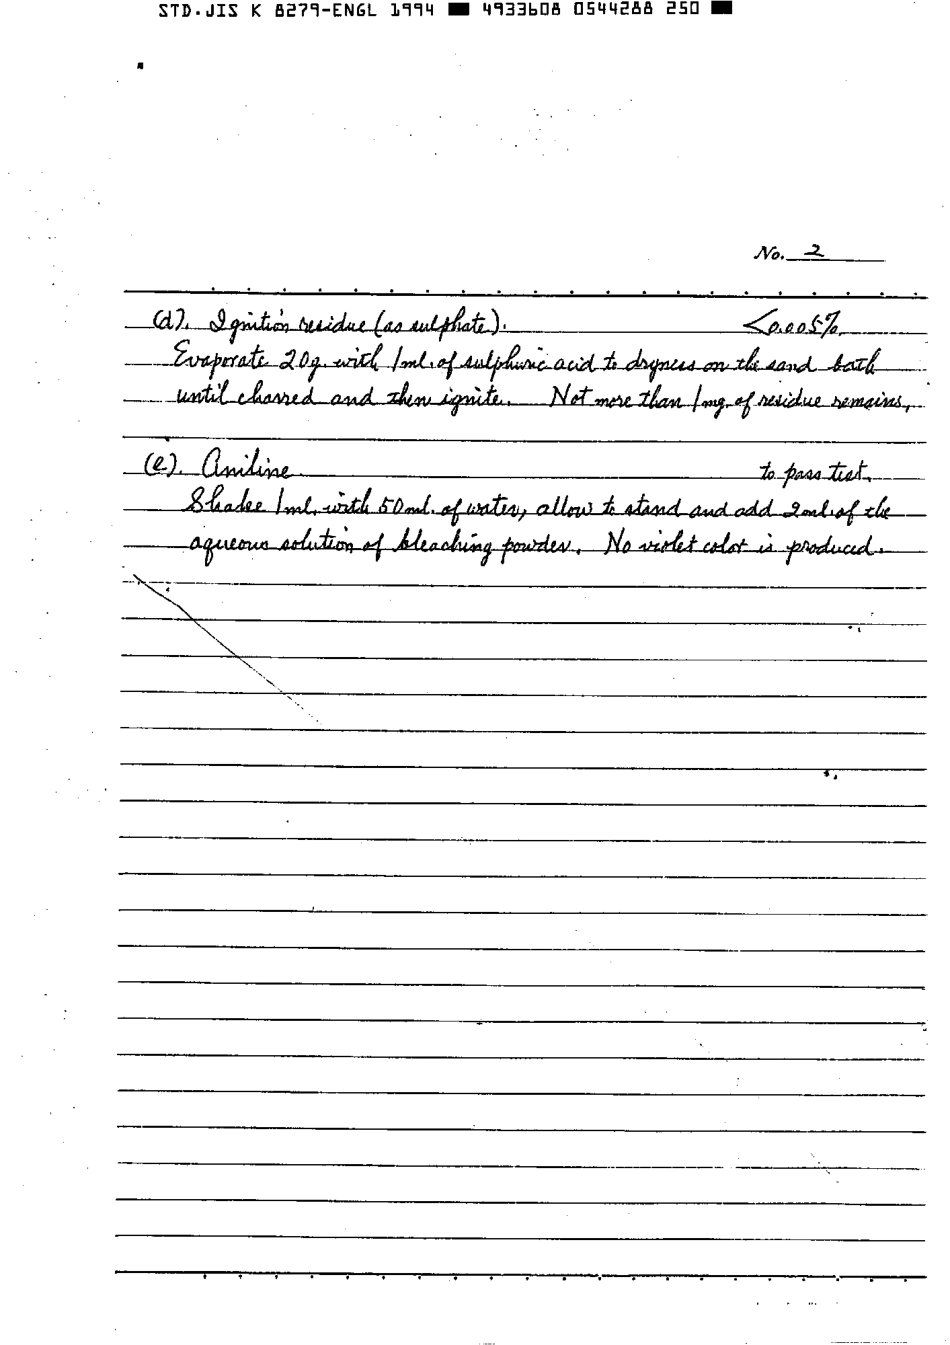 STD.JIS K 8279-ENGL 1994 ■ 4933608 0544288 250 ■
No. 2
(d). Ignition residue (as sulphate). <0.005%
Evaporate 20g. with 1ml. of sulphuric acid to dryness on the sand bath
until charred and then ignite. Not more than 1mg. of residue remains.
(e). Aniline to pass test.
Shake 1ml. with 50ml. of water, allow to stand and add 2ml. of the
aqueous solution of bleaching powder. No violet color is produced.